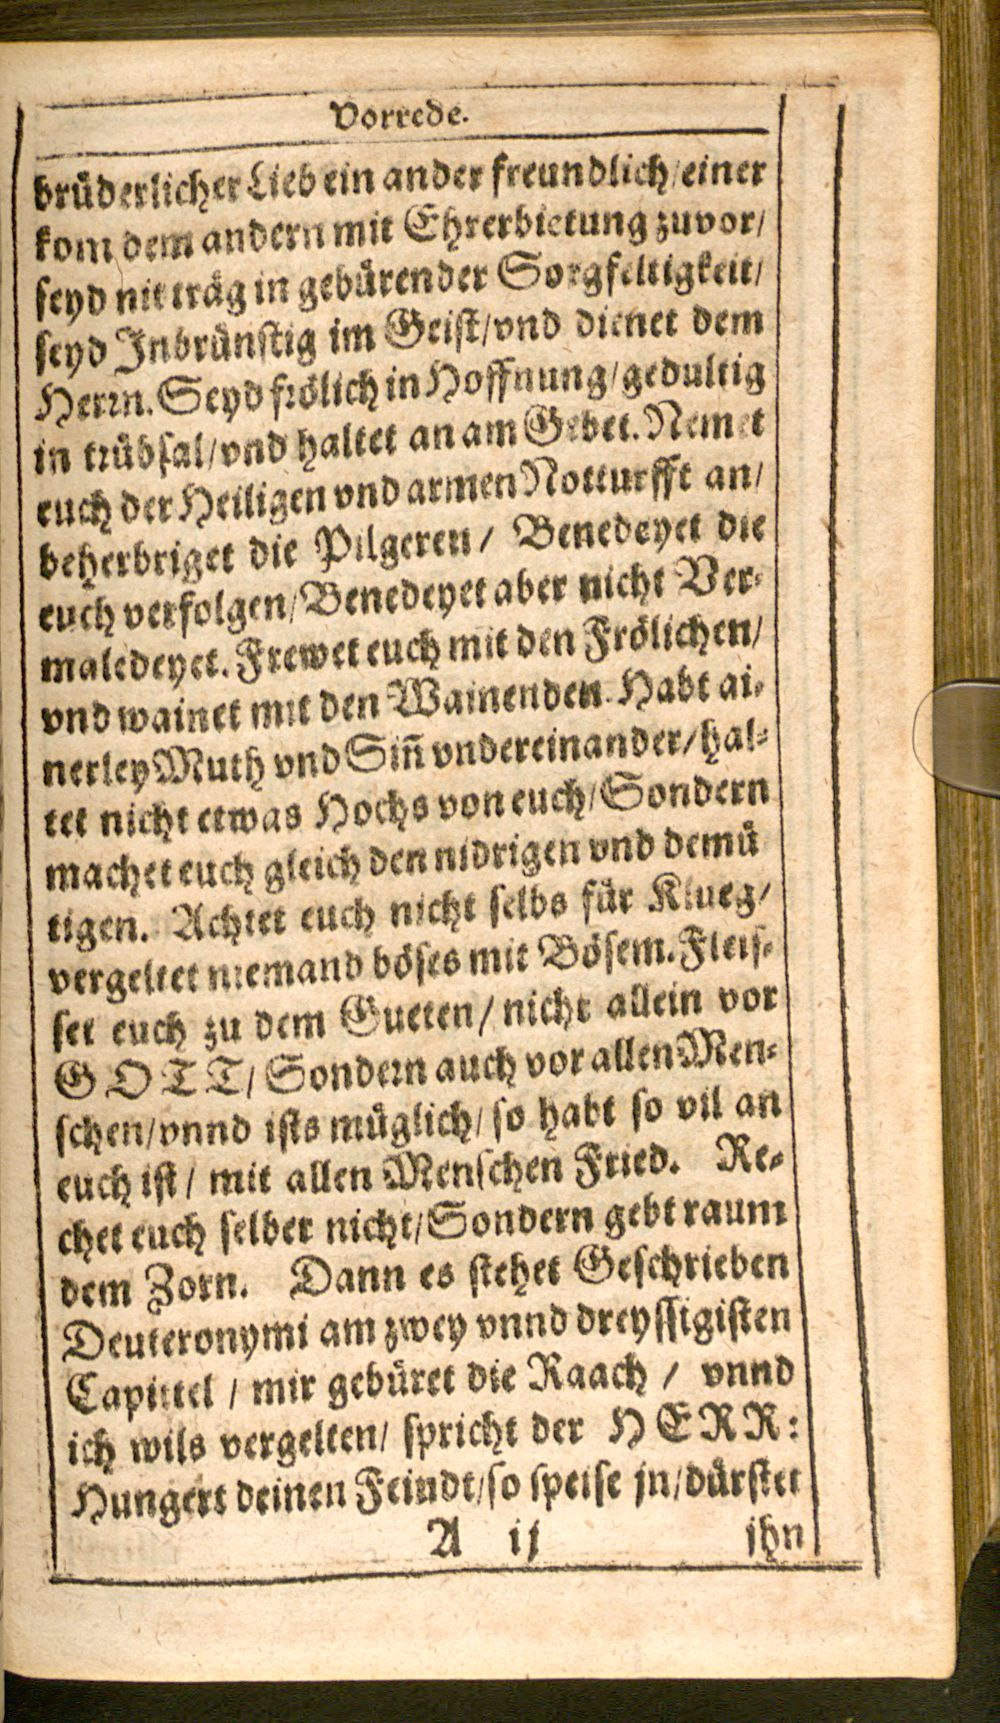 Vorrede.
brüderlicher Lieb ein ander freundlich/einer
kom dem andern mit Ehrerbietung zuvor/
seyd nit träg in gebürender Sorgfeltigkeit/
seyd Inbrünstig im Geist/vnd dienet dem
Herrn. Seyd frölich in Hoffnung/gedultig
in trübsal/vnd haltet an am Gebet. Nemet
euch der Heiligen vnd armen Notturfft an/
beherbriget die Pilgeren/ Benedeyet die
euch verfolgen/Benedeyet aber nicht Ver-
maledeyet. Frewet euch mit den Frölichen/
vnd wainet mit den Wainenden. Habt ai-
nerley Muth vnd Siñ vndereinander/hal-
tet nicht etwas Hochs von euch/Sondern
machet euch gleich den nidrigen vnd demü
tigen. Achtet euch nicht selbs für Klueg/
vergeltet niemand böses mit Bösem. Fleis-
set euch zu dem Gueten/nicht allein vor
GOTT/ Sondern auch vor allen Men-
schen/vnnd ists müglich/so habt so vil an
euch ist/ mit allen Menschen Fried. Re-
chet euch selber nicht/Sondern gebt raum
dem Zorn. Dann es stehet Geschrieben
Deuteronymi am zwey vnnd dreyssigisten
Capittel / mir gebüret die Raach / vnnd
ich wils vergelten/ spricht der HERR:
Hungert deinen Feindt/so speise jn/dürstet
A ij jhn